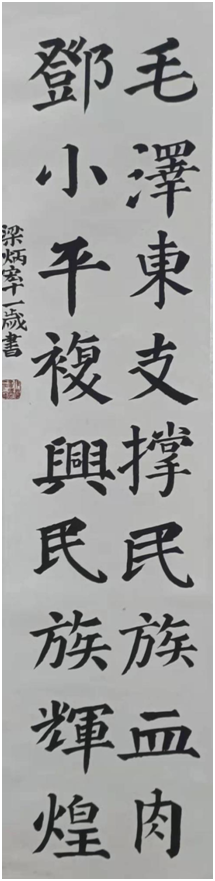 毛澤東支撐民族血肉
鄧小平複興民族輝煌
梁炳宏十一歲書